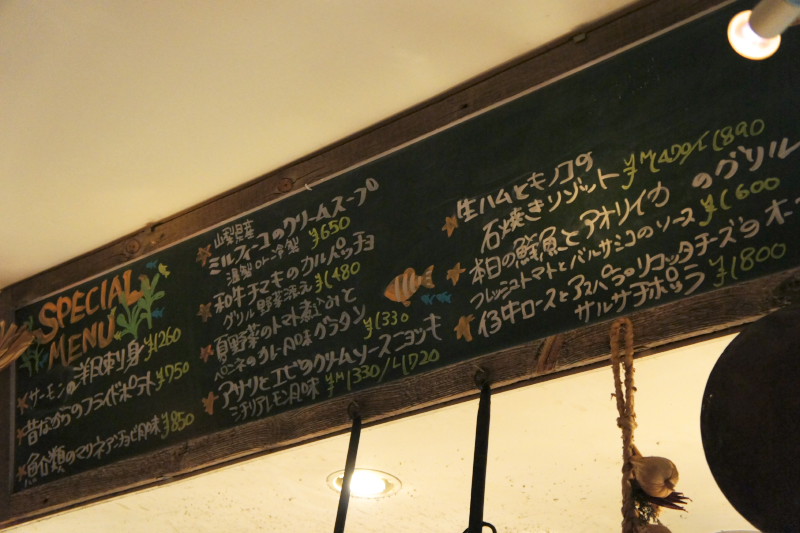 SPECIAL
MENU
サーモンの洋風刺身 ¥1260
昔ながらのフライドポテト ¥750
魚介類のマリネアンチョビ風味 ¥850
山梨県産
ミルフィーユのクリームスープ
温製 or 冷製 ¥650
和牛チマキのカルパッチョ
グリル野菜添え ¥1480
夏野菜のトマト煮込みと
ペンネのカレー風味グラタン ¥1330
アサリとエビのクリームソースニョッキ
シチリアレモン風味 ¥M1330/L1720
生ハムとキノコの
石焼きリゾット ¥M1479/L1890
本日の鮮魚とアオリイカのグリル
フレッシュトマトとバルサミコのソース ¥1600
仔牛ロースとアスパラのリコッタチーズ
サルサチポッラ ¥1800